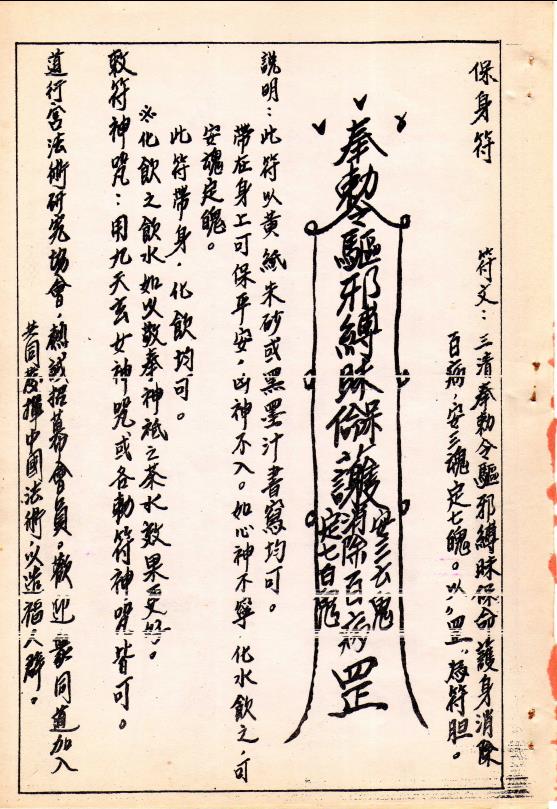 保身符
符文：三清奉勅令驅邪縛昧保命護身消除
百病，安三魂定七魄。以〃罡〃為符胆。
奉勅令驅邪縛昧保命護
安三云鬼
消除百病
定七白鬼
罡
說明：此符以黄紙朱砂或黑墨汁書寫均可。
帶在身上可保平安，凶神不入。如心神不寧，化水飲之，可
安魂定魄。
此符帶身，化飲均可。
※化飲之飲水如以敬奉神祇之茶水效果更好。
敕符神咒：用九天玄女神咒或各勅符神咒皆可。
道行宫法術研究協會，熱誠招募會員，歡迎眾同道加入
共同發揮中國法術，以造福人群。